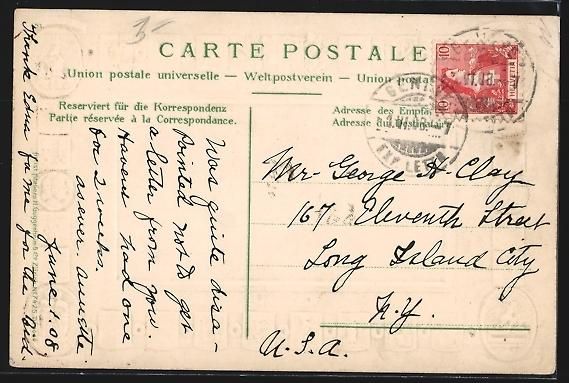 3-
CARTE POSTALE
Union postale universelle — Weltpostverein — Union posta
Reserviert für die Korrespondenz
Partie réservée à la Correspondance.
Adresse des Empfä
Adresse du destinatai
10
10
HELVETIA
GENÈ
1.VI.08.
EXP. LETT.
VI.08
Mr. George H. Clay
167 Eleventh Street
Long Island City
N.Y.
U.S.A.
Was quite disa-
pointed not to get
a letter from you.
Havent had one
for 2 weeks.
as ever.
June 1.08.
Thank Edna for me for the